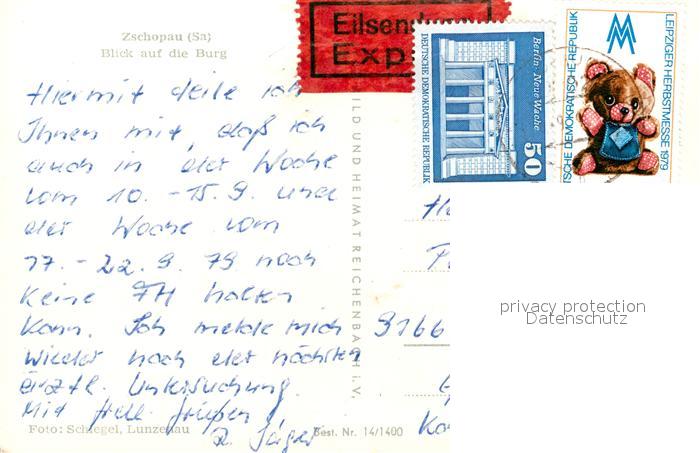 Zschopau (Sa)
Blick auf die Burg
Eilsendung
Exp
Berlin · Neue Wache
DEUTSCHE DEMOKRATISCHE REPUBLIK
50
LEIPZIGER HERBSTMESSE 1979
TSCHE DEMOKRATISCHE REPUBLIK
Hiermit teile ich
Ihnen mit, daß ich
auch in der Woche
vom 10. - 15. 9. und
der Woche vom
17. - 22. 9. 79 noch
keine FH halten
kann. Ich melde mich
wieder nach der nächsten
ärztl. Untersuchung.
Mit frdl. Grüßen
R. Jäger
ILD UND HEIMAT REICHENBACH i. V.
9166
privacy protection
Datenschutz
Foto: Schlegel, Lunzenau
Best. Nr. 14/1400